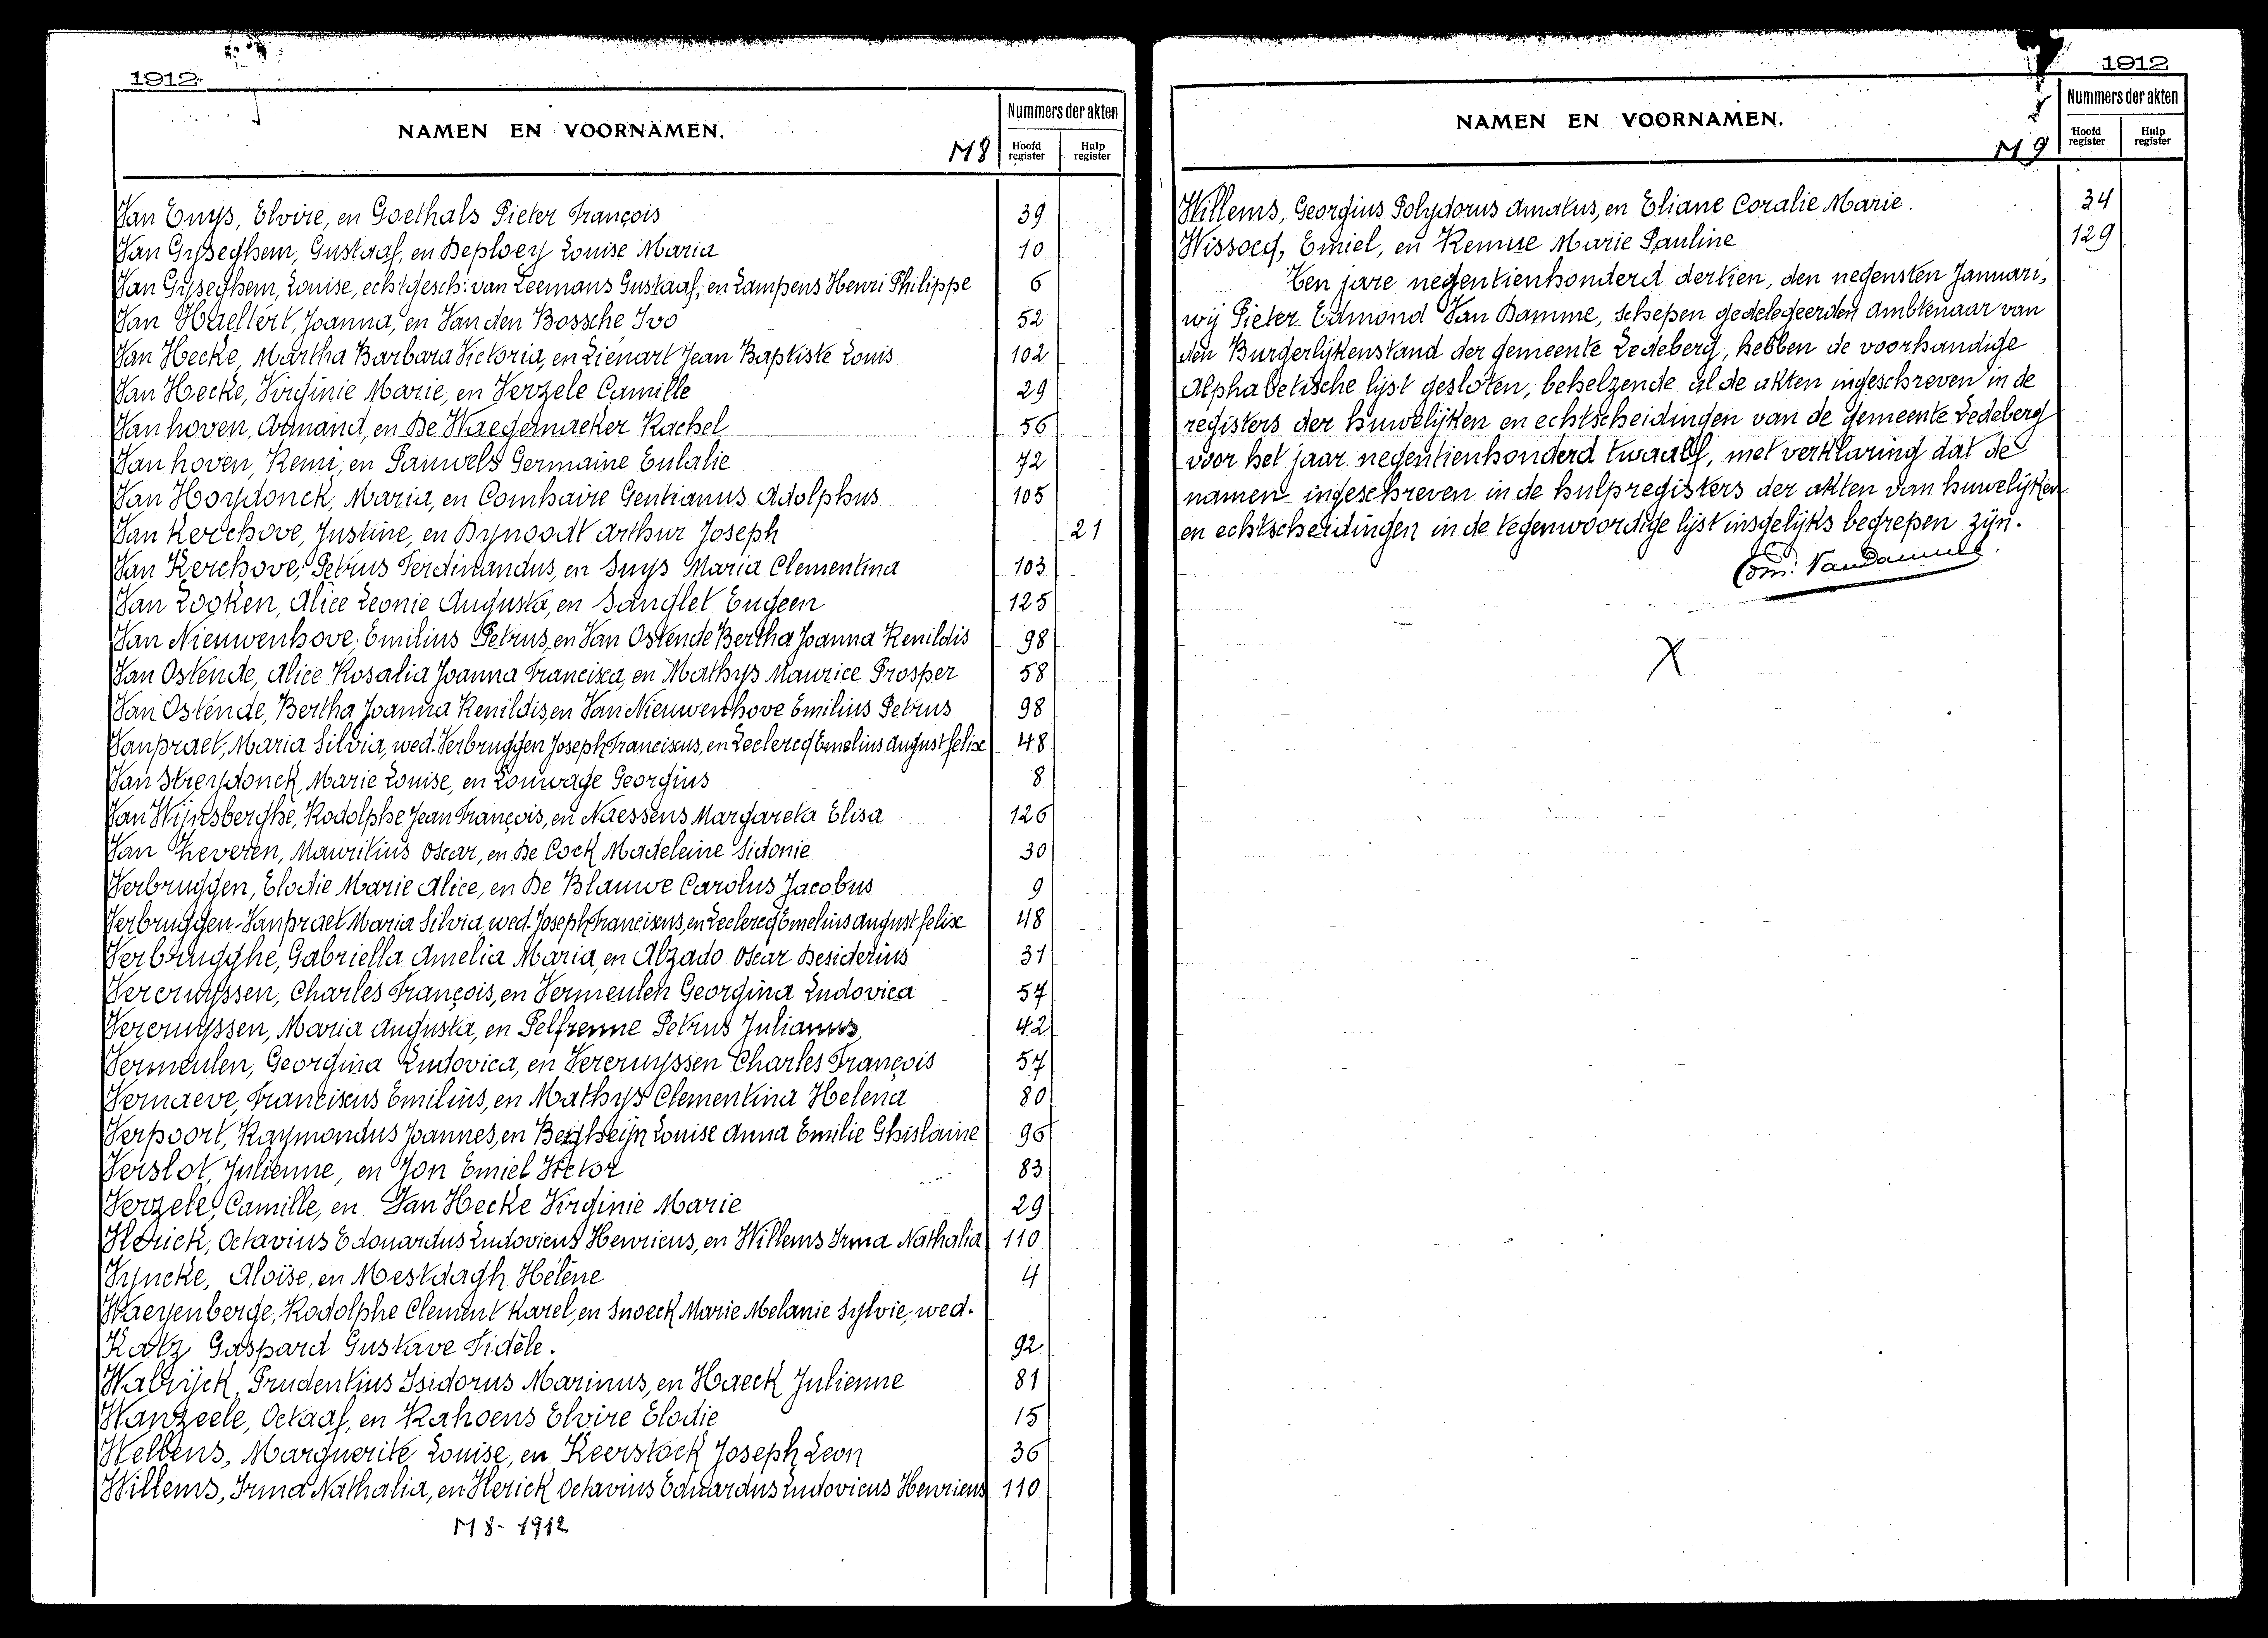 1912
NAMEN EN VOORNAMEN.
M 8
Nummers der akten
Hoofd register
Hulp register
Van Enys, Elvire, en Goethals Pieter François 39
Van Gyseghem, Gustaaf, en Deploey Louise Maria 10
Van Gyseghem, Louise, echtgesch: van Leemans Gustaaf, en Lampens Henri Philippe 6
Van Haellert, Joanna, en Van den Bossche Ivo 52
Van Hecke, Martha Barbara Victoria, en Liénart Jean Baptiste Louis 102
Van Hecke, Virginie Marie, en Verzele Camille 29
Van hoven, Armand, en De Waegemaeker Rachel 56
Van hoven, Remi, en Pauwels Germaine Eulalie 72
Van Hoydonck, Maria, en Comhaire Gentianus Adolphus 105
Van Kerchove, Justine, en Dynoodt Arthur Joseph 21
Van Kerchove, Petrus Ferdinandus, en Suys Maria Clementina 103
Van Looken, Alice Leonie Augusta, en Sanglet Eugeen 125
Van Nieuwenhove, Emilius Petrus, en Van Ostende Bertha Joanna Renildis 98
Van Ostende, Alice Rosalia Joanna Francisca, en Mathys Maurice Prosper 58
Van Ostende, Bertha Joanna Renildis, en Van Nieuwenhove Emilius Petrus 98
Vanpraet, Maria Silvia, wed. Verbruggen Joseph Franciscus, en Leclercq Emelius August felix 48
Van Streydonck, Marie Louise, en Louwage Georgius 8
Van Wijnsberghe, Rodolphe Jean François, en Naessens Margareta Elisa 126
Van Zeveren, Mauritius Oscar, en De Cock Madeleine Sidonie 30
Verbruggen, Elodie Marie Alice, en De Blauwe Carolus Jacobus 9
Verbruggen-Vanpraet Maria Silvia, wed. Joseph Franciscus, en Leclercq Emelius August felix 48
Verbrugghe, Gabriella Amelia Maria, en Alzado Oscar Desiderius 31
Vercruyssen, Charles François, en Vermeulen Georgina Ludovica 57
Vercruyssen, Maria Augusta, en Pelfrenne Petrus Julianus 42
Vermeulen, Georgina Ludovica, en Vercruyssen Charles François 57
Vernaeve, Franciscus Emilius, en Mathys Clementina Helena 80
Verpoort, Raymondus Joannes, en Louise Anna Emilie Ghislaine 96
Verslot, Julienne, en Jon Emiel Hector 83
Verzele, Camille, en Van Hecke Virginie Marie 29
Vlerick, Octavius Edouardus Ludovicus Henricus, en Willems Irma Nathalia 110
Vyncke, Aloïse, en Mestdagh Hélène 4
Waeyenberge, Rodolphe Clement Karel, en Snoeck Marie Melanie Sylvie, wed.
Katz Gaspard Gustave Fidèle. 92
Walrijck, Prudentius Isidorus Marinus, en Haeck Julienne 81
Wanzeele, Octaaf, en Kahoens Elvire Elodie 15
Wellens, Marguerite Louise, en Keerstock Joseph Leon 36
Willems, Irma Nathalia, en Vlerick Octavius Eduardus Ludovicus Henricus 110
M 8 - 1912
1912
NAMEN EN VOORNAMEN.
M 9
Nummers der akten
Hoofd register
Hulp register
Willems, Georgius Polydorus Amatus, en Eliane Coralie Marie 34
Wissocq, Emiel, en Kenne Marie Pauline 129
Ten jare negentienhonderd dertien, den negensten Januari,
wij Pieter Edmond Van Damme, schepen gedelegeerden ambtenaar van
den Burgerlijkenstand der gemeente Ledeberg, hebben de voorhandige
Alphabetische lijst gesloten, behelzende al de akten ingeschreven in de
registers der huwelijken en echtscheidingen van de gemeente Ledeberg
voor het jaar negentienhonderd twaalf, met verklaring dat de
namen ingeschreven in de hulpregisters der akten van huwelijken
en echtscheidingen in de tegenwoordige lijst insgelijks begrepen zijn.
Edm. VanDamme.
X